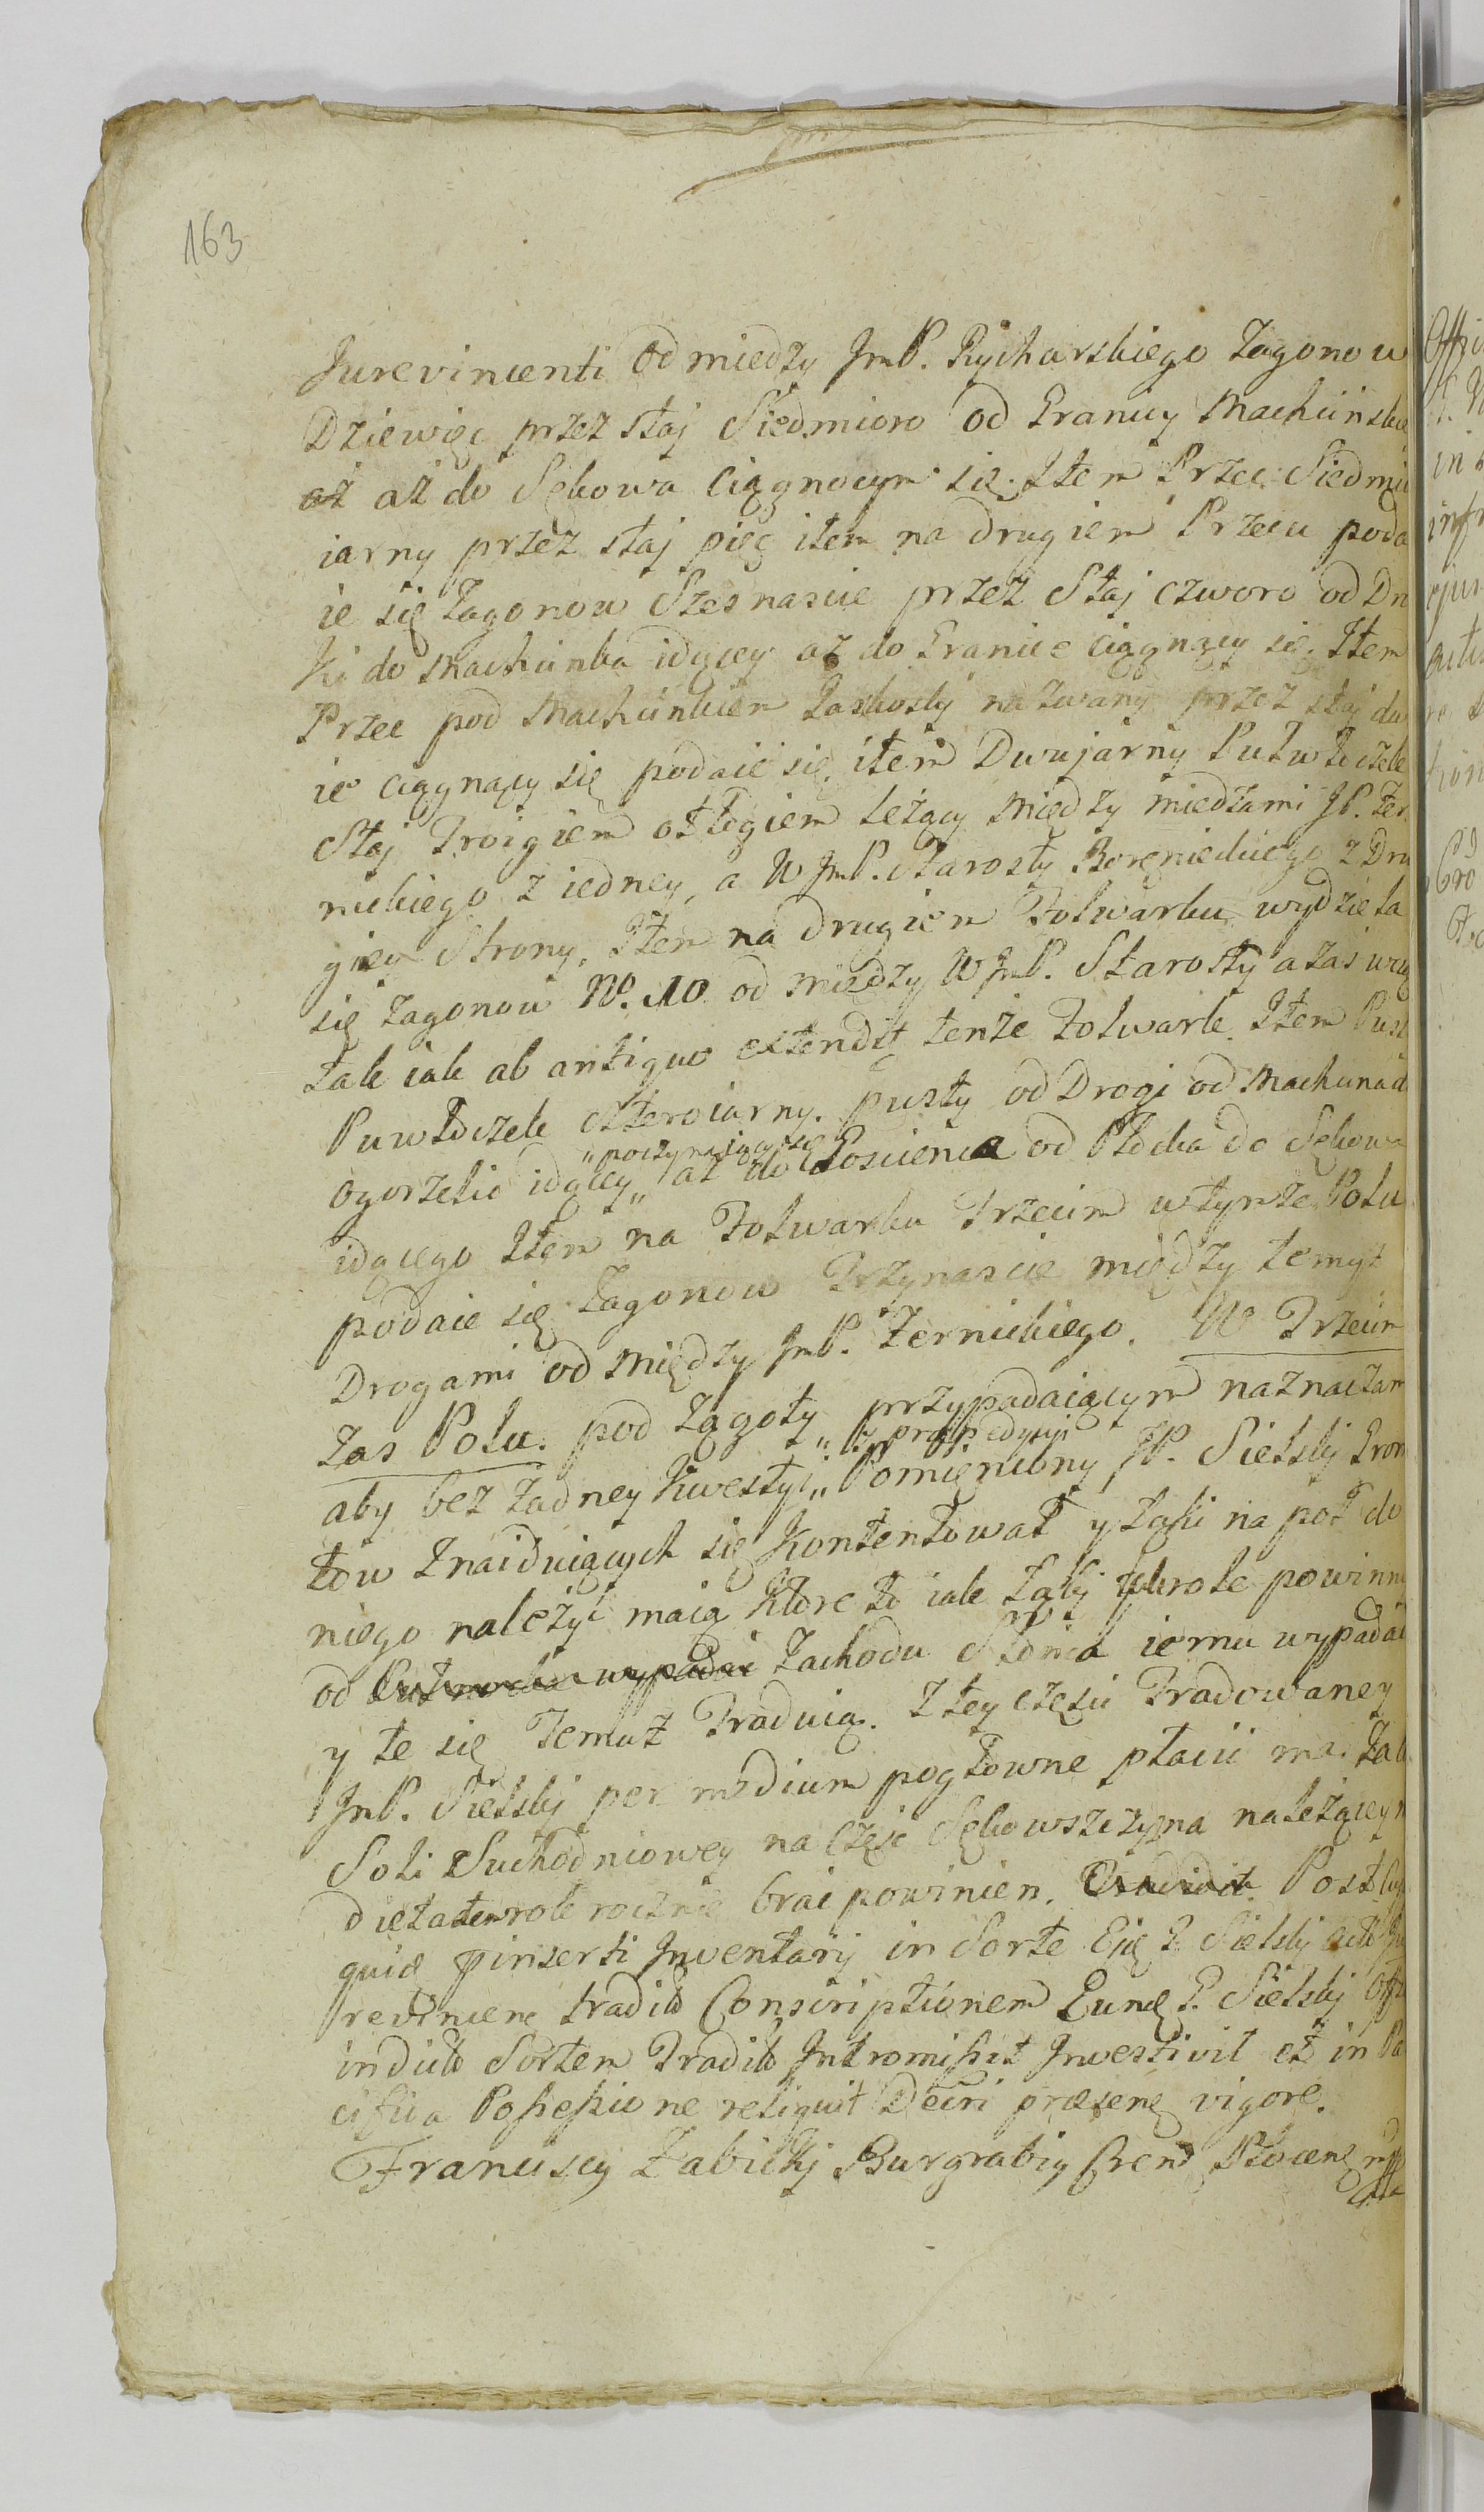 163
Jurevinienti od miedzy JmP. Rycharskiego Zagonow
Dziewięc przez staj Siedmioro od Granicy Machcinskie
aż aż do Sękowa Ciągnocym się. Item Przec Siedmiu
iarny przez staj pięc item na drugiem Przecu poda
ie się Zagonow Szesnascie przez Staj czworo od Dro
ki do Machcinka idącey aż do Granice ciągnący się. Item
Przec pod Machcinkiem Laskosky nazwany przez staj dw
ie ciągnący się podaie się. item Dwujarny Pułwłoczek
Staj Troigiem osłogiem leżący między miedzami JP. Żer
nickiego z iedney, a W JmP. Starosty Borzęnieckiego z Dru
giey Strony, Item na drugiem Folwarku wydziela
się Zagonow No. 10 od miedzy W JmP. Starosty a zas wzią
tak iak ab antiquo extendit tenże Folwark. Item Pust
Puwłoczek czteroiarny. pusty od Drogi od Machcina d
„poczynaiący się
ogorzelic idącey„ aż do Goscienca od Płocka do Sękowa
idącego Item na Folwarku Trzecim w tymże Polu
podaie się Zagonow Trzynascie między temyż
Drogami od miedzy JmP. Żernickiego. W Trzecim
Zas Polu. pod Zagoty przypadaiącym naznaczam
aby bez żadney kwestyi„ Pomieniony JP. Sielsky Gron
tow Znaiduiących się kontentował y taki na poł do
niego należyć maią ktore to iak taky ukrole powinny
od Zachodu Słonca iemu wypadać
y te się Temuż Traduią. Z tey częsci Tradowaney
JmP. Sielsky per medium pogłowne płacic ma. Zab
Soli Suchodniowey na częsc Sękowszczyzna należącey
roczni brac powinien. Post
quid pinserti Inventarij in Sorte Ejq P. Sielsky actu Ju
revinienq tradita Conscriptionem Eunq P. Sielsky Offi
indicta Sortem Tradita Intromisit Investivit et in Pa
cifica Possessione reliquit Decri præsenq vigore.
Franciscy Zabicky Burgrabiy Cren Płocenq mpp